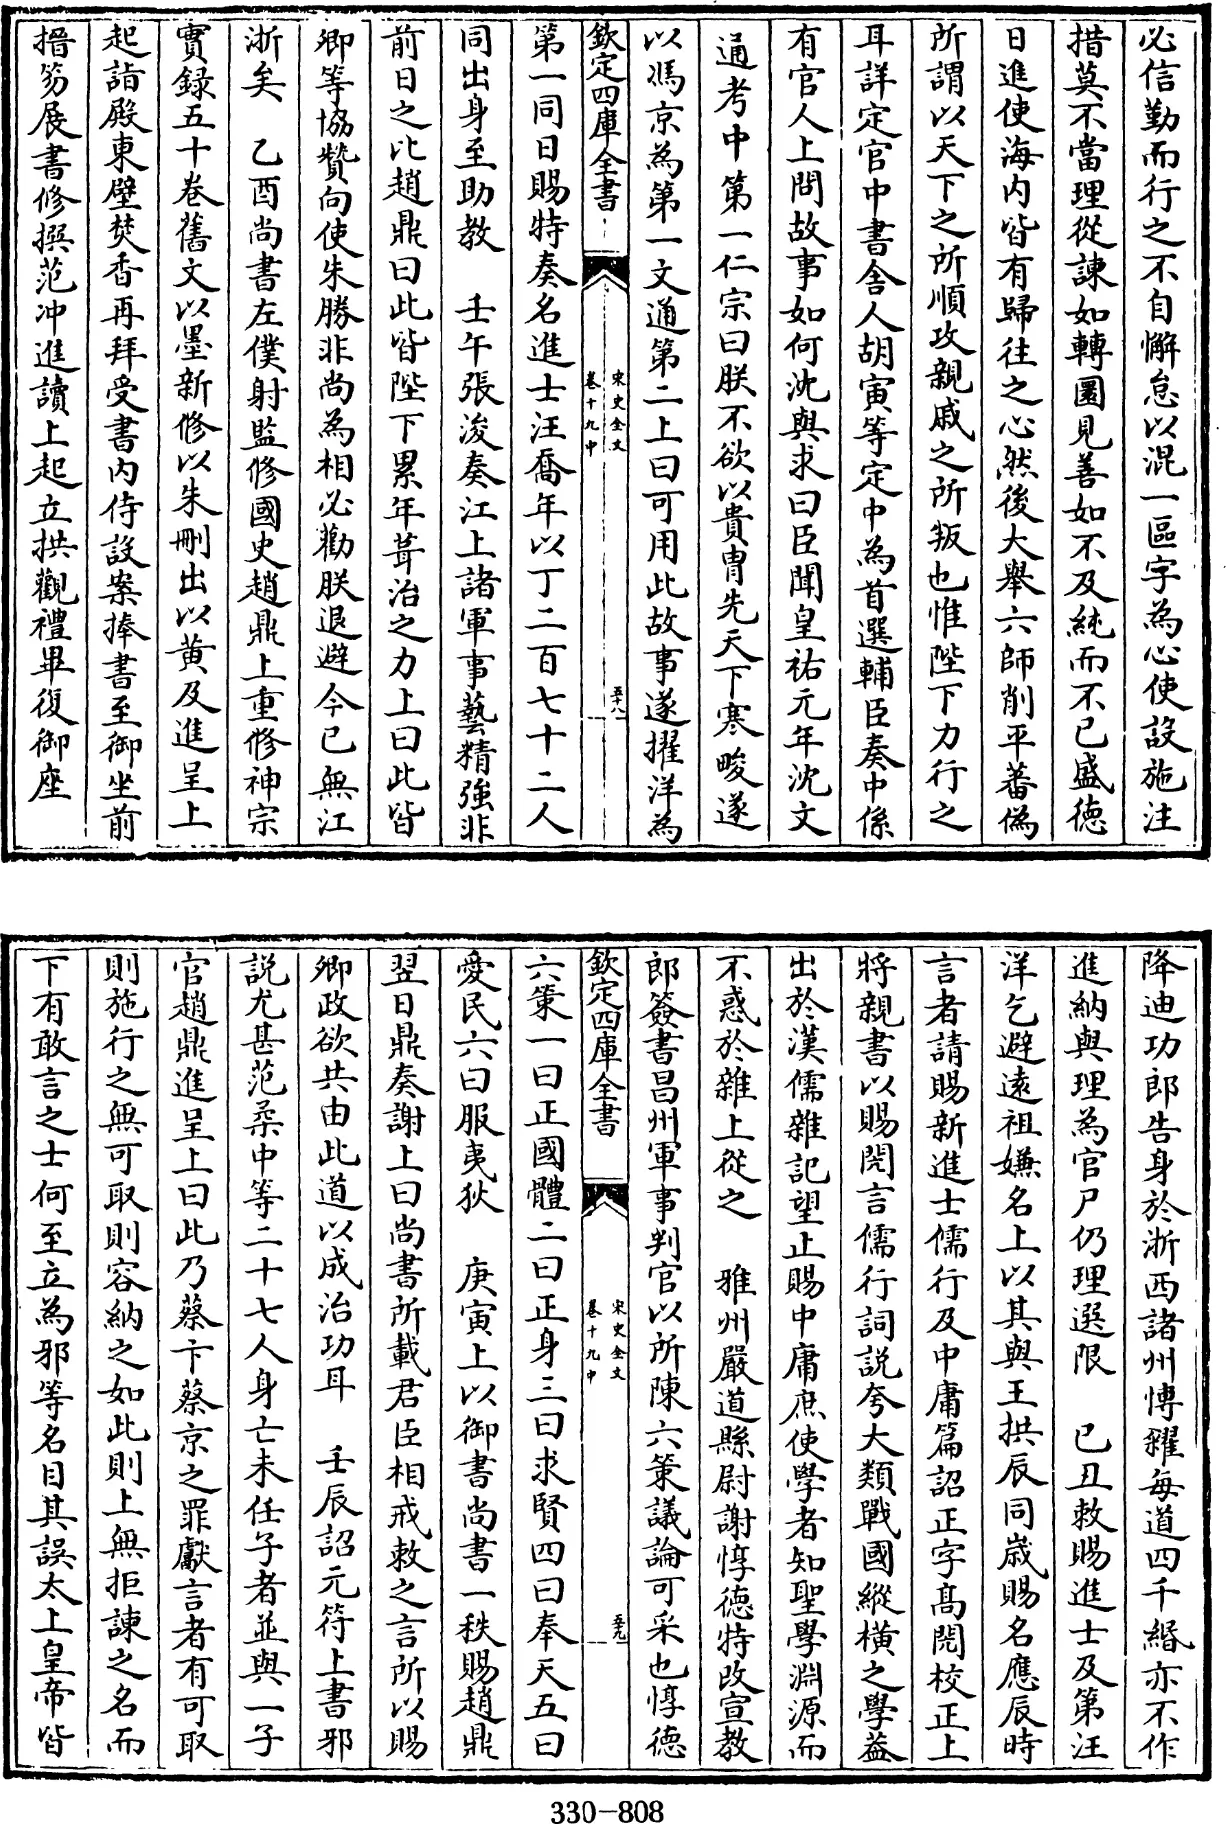 必信勤而行之不自懈怠以混一區宇為心使設施注
措莫不當理從諫如轉圜見善如不及純而不已盛德
日進使海内皆有歸往之心然後大舉六師削平蕃偽
所謂以天下之所順攻親戚之所叛也惟陛下力行之
耳詳定官中書舍人胡寅等定中為首選輔臣奏中係
有官人上問故事如何沈與求曰臣聞皇祐元年沈文
通考中第一仁宗曰朕不欲以貴胄先天下寒畯遂
以馮京為第一文通第二上曰可用此故事遂擢洋為
欽定四庫全書
宋史全文
卷十九中
五十八
第一同日賜特奏名進士汪喬年以丁二百七十二人
同出身至助教　壬午張浚奏江上諸軍事藝精強非
前日之比趙鼎曰此皆陛下累年葺治之力上曰此皆
卿等協贊向使朱勝非尚為相必勸朕退避今已無江
浙矣　乙酉尚書左僕射監修國史趙鼎上重修神宗
實録五十卷舊文以墨新修以朱刪出以黄及進呈上
起詣殿東壁焚香再拜受書内侍設案捧書至御坐前
搢笏展書修撰范沖進讀上起立拱觀禮畢復御座
降迪功郎告身於浙西諸州博糴每道四千緡亦不作
進納與理為官户仍理選限　已丑敕賜進士及第汪
洋乞避遠祖嫌名上以其與王拱辰同歲賜名應辰時
言者請賜新進士儒行及中庸篇詔正字髙閌校正上
將親書以賜閌言儒行詞説夸大類戰國縱横之學蓋
出於漢儒雜記望止賜中庸庶使學者知聖學淵源而
不惑於雜上從之　雅州嚴道縣尉謝惇德特改宣教
郎簽書昌州軍事判官以所陳六策議論可采也惇德
欽定四庫全書
宋史全文
卷十九中
五九
六策一曰正國體二曰正身三曰求賢四曰奉天五曰
愛民六曰服夷狄　庚寅上以御書尚書一秩賜趙鼎
翌日鼎奏謝上曰尚書所載君臣相戒敕之言所以賜
卿政欲共由此道以成治功耳　壬辰詔元符上書邪
説尤甚范柔中等二十七人身亡未任子者並與一子
官趙鼎進呈上曰此乃蔡卞蔡京之罪獻言者有可取
則施行之無可取則容納之如此則上無拒諫之名而
下有敢言之士何至立為邪等名目其誤太上皇帝皆
330-808